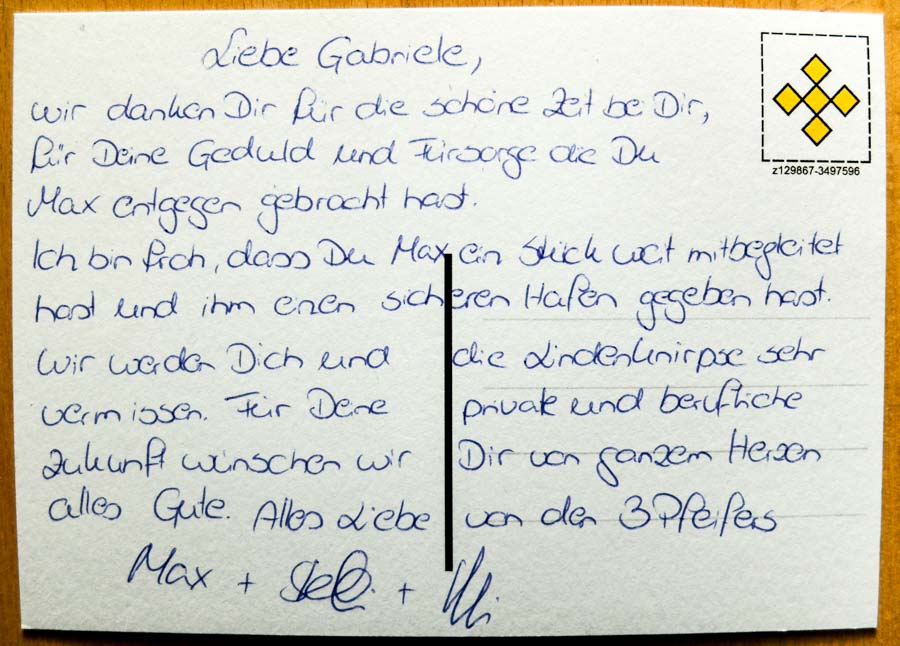 Liebe Gabriele,
z129867-3497596
wir danken Dir für die schöne Zeit bei Dir,
für Deine Geduld und Fürsorge die Du
Max entgegen gebracht hast.
Ich bin froh, dass Du Max ein Stück weit mitbegleitet
hast und ihm einen sicheren Hafen gegeben hast.
Wir werden Dich und die Lindenknirpse sehr
vermissen. Für Deine private und berufliche
Zukunft wünschen wir Dir von ganzem Herzen
alles Gute. Alles Liebe von den 3 Pfeifers
Max + +